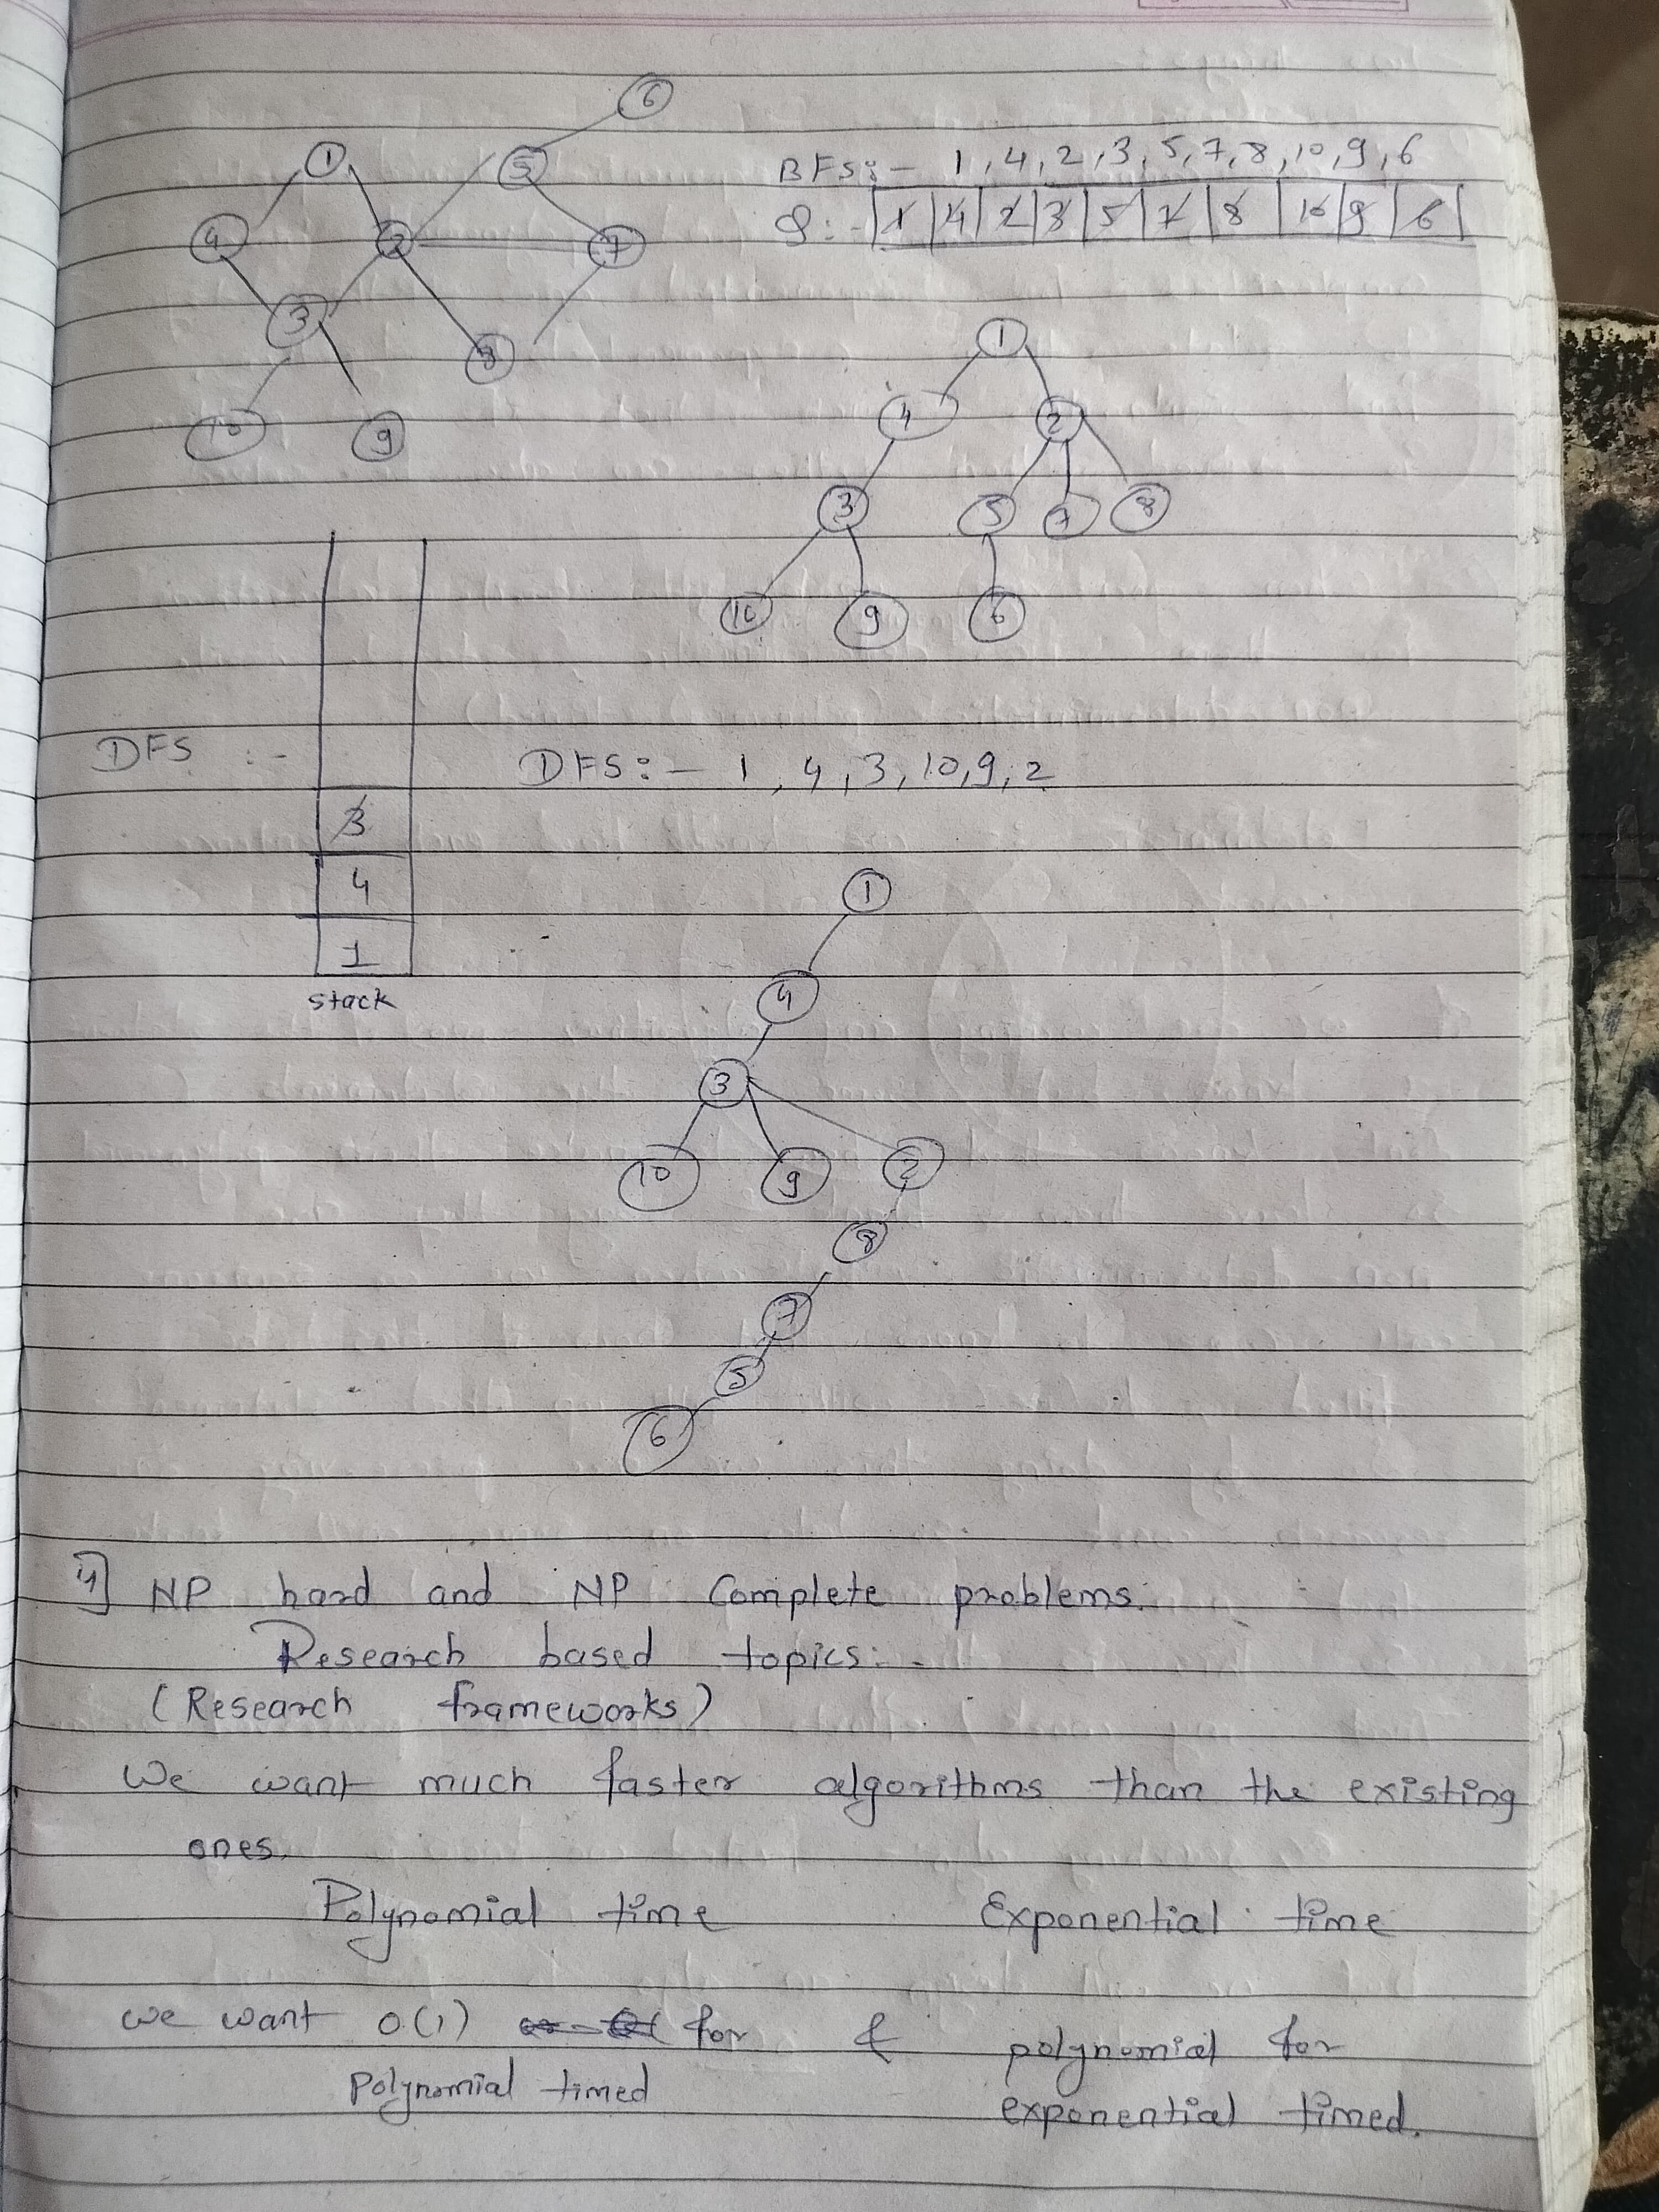 6
1
5
BFS:- 1, 4, 2, 3, 5, 7, 8, 10, 9, 6
4
2
7
Q:- 1 4 2 3 5 7 8 10 9 6
3
8
1
10
9
4
2
3
5
7
8
10
9
6
DFS :-
DFS:- 1, 4, 3, 10, 9, 2
3
4
1
stack
1
4
3
10
9
2
8
7
5
6
4] NP hard and NP Complete problems.
Research based topics:-
(Research frameworks)
We want much faster algorithms than the existing
ones.
Polynomial time Exponential time
we want O(1) for & polynomial for
polynomial timed exponential timed.